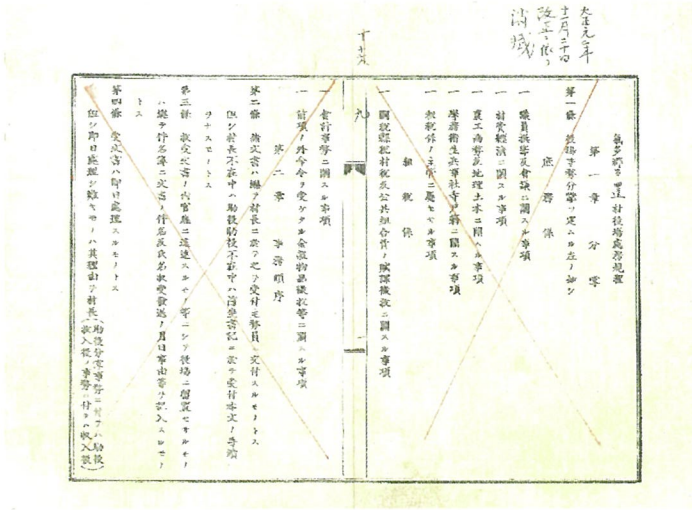 大正元年
十一月二十日
改正ニ依リ
消滅
村役場處務規程
第一章 分掌
第一條 役場事務分掌ヲ定ムル左ノ如シ
庶務係
一 職員撰擧及會議ニ關スル事項
一 村費經濟ニ關スル事項
一 農工商務及地理土木ニ關スル事項
一 學務衛生兵事社寺戸籍ニ關スル事項
一 租税係ノ主管ニ屬セサル事項
租税係
一 國税縣税村税及公共組合費ノ賦課徴收ニ關スル事項
九
一 會計事務ニ關スル事項
一 前項ノ外命令ヲ受ケタル金穀物品議收等ニ關スル事項
第二章 事務順序
第二條 諸文書ハ總テ村長ニ於テ之ヲ受付主務員ニ交付スルモノトス
但シ村長不在中ハ助役助役不在中ハ首座書記ニ於テ受付本文ノ手續
ヲナスモノトス
第三條 收受文書ノ内官廳ニ進達スルモノ等ニシテ役場ニ留置セサルモノ
ハ總テ件名簿ニ文書ノ件名及氏名收受發送ノ月日事由等ヲ記入スルモノ
トス
第四條 受文書ハ即日處理スルモノトス
但シ即日處理シ難キモノハ其理由ヲ村長(助役分掌事務ニ付テハ助役
收入役ノ事務ニ付テハ收入役)